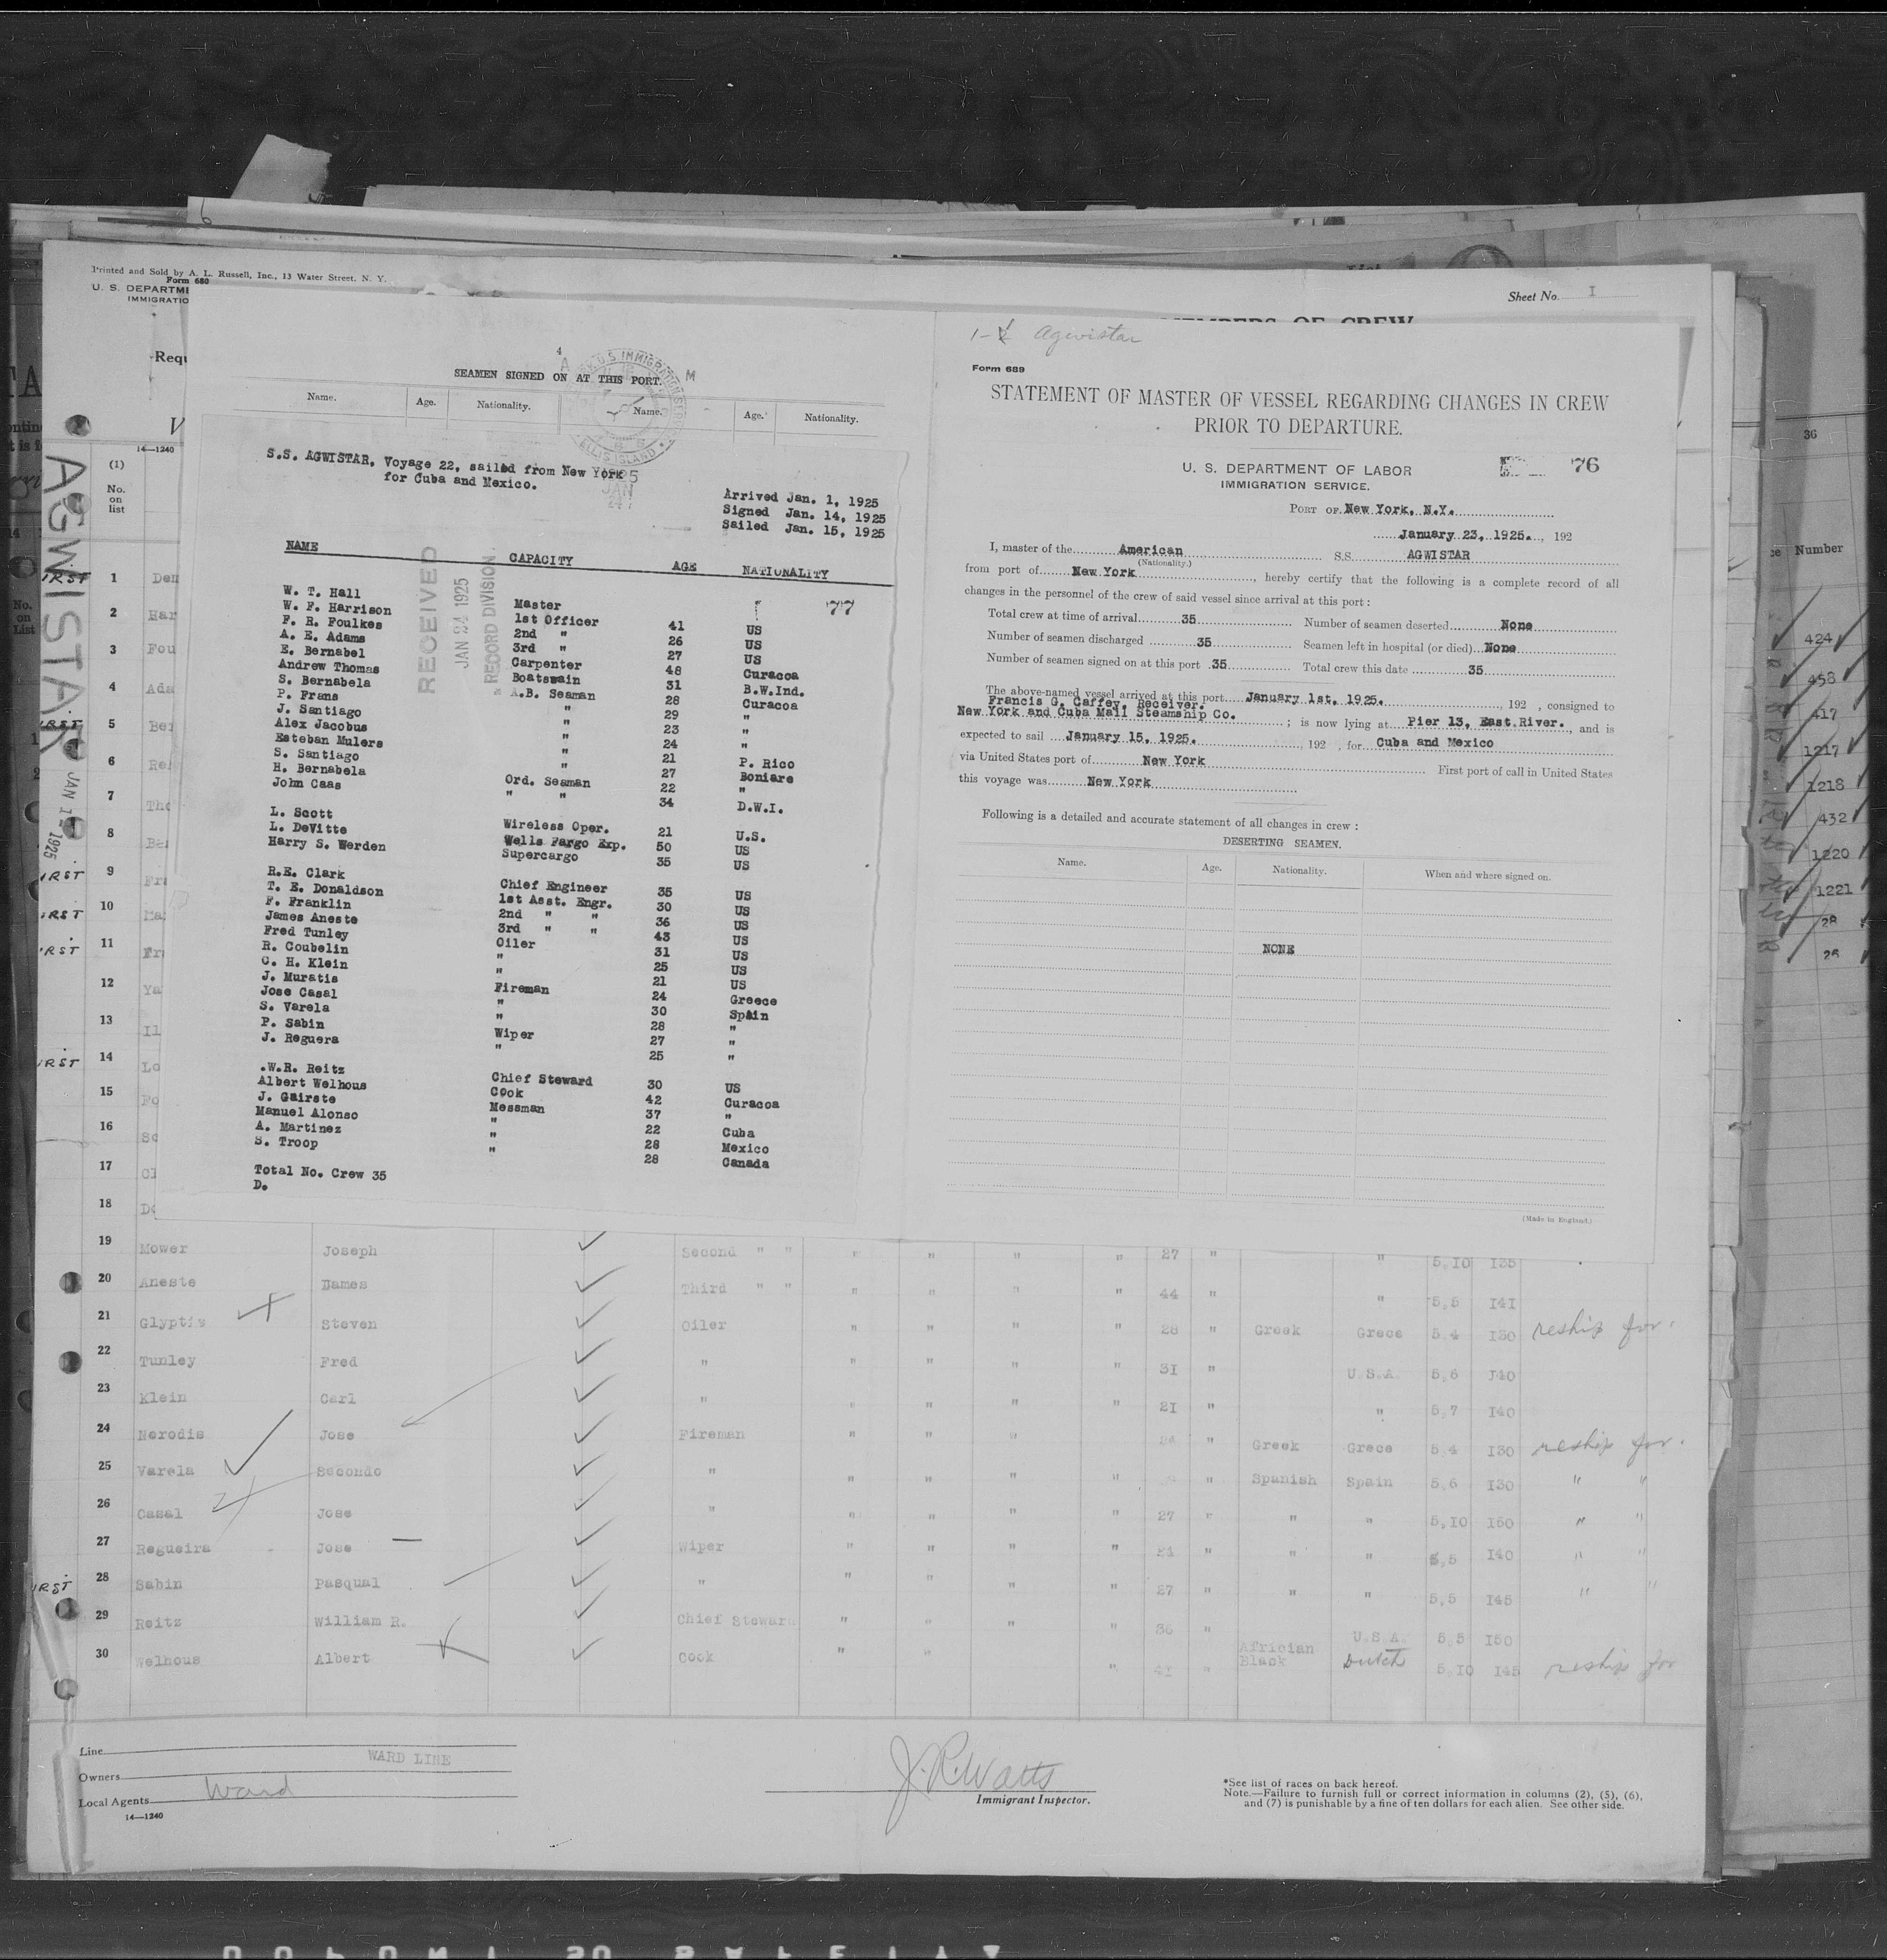 Printed and Sold by A. L. Russell, Inc., 13 Water Street, N. Y.
Form 680
U. S. DEPARTME
IMMIGRATIO
Sheet No. I
MEMBERS OF CREW
Requ
V
14—1240
(1)
No.
on
list
AGWISTAR
JAN 1 - 1925
4
SEAMEN SIGNED ON AT THIS PORT.
Name. Age. Nationality. Name. Age. Nationality.
U.S. IMMIGRATION SERVICE
ELLIS ISLAND
S.S. AGWISTAR, Voyage 22, sailed from New York
for Cuba and Mexico.
Arrived Jan. 1, 1925
Signed Jan. 14, 1925
Sailed Jan. 15, 1925
RECEIVED
JAN 24 1925
RECORD DIVISION
NAME CAPACITY AGE NATIONALITY
77
W. T. Hall Master 41 US
W. F. Harrison 1st Officer 26 US
F. R. Foulkes 2nd " 27 US
A. E. Adams 3rd " 48 Curacoa
E. Bernabel Carpenter 31 B.W.Ind.
Andrew Thomas Boatswain 28 Curacoa
S. Bernabela A.B. Seaman 29 "
P. Frans " 23 "
J. Santiago " 24 "
Alex Jacobus " 21 P. Rico
Esteban Mulers " 27 Boniare
S. Santiago " 22 "
H. Bernabela Ord. Seaman 34 D.W.I.
John Caas " "
L. Scott Wireless Oper. 21 U.S.
L. DeVitte Wells Fargo Exp. 50 US
Harry S. Werden Supercargo 35 US
R.E. Clark Chief Engineer 35 US
T. E. Donaldson 1st Asst. Engr. 30 US
F. Franklin 2nd " " 36 US
James Aneste 3rd " " 43 US
Fred Tunley Oiler 31 US
R. Coubelin " 25 US
C. H. Klein " 21 US
J. Muratis Fireman 24 Greece
Jose Casal " 30 Spain
S. Varela " 28 "
P. Sabin Wiper 27 "
J. Reguera " 25 "
.W.R. Reitz Chief Steward 30 US
Albert Welhous Cook 42 Curacoa
J. Gairste Messman 37 "
Manuel Alonso " 22 Cuba
A. Martinez " 28 Mexico
S. Troop " 28 Canada
Total No. Crew 35
D.
Agwistar
Form 689
STATEMENT OF MASTER OF VESSEL REGARDING CHANGES IN CREW
PRIOR TO DEPARTURE.
U. S. DEPARTMENT OF LABOR
IMMIGRATION SERVICE.
76
PORT OF New York, N.Y.
January 23, 1925., 192
I, master of the American S.S. AGWISTAR
(Nationality.)
from port of New York, hereby certify that the following is a complete record of all
changes in the personnel of the crew of said vessel since arrival at this port :
Total crew at time of arrival 35 Number of seamen deserted None
Number of seamen discharged 35 Seamen left in hospital (or died) None
Number of seamen signed on at this port 35 Total crew this date 35
The above-named vessel arrived at this port January 1st, 1925. , 192 , consigned to
Francis G. Caffey, Receiver.
New York and Cuba Mail Steamship Co. ; is now lying at Pier 13, East River. , and is
expected to sail January 15, 1925. , 192 , for Cuba and Mexico
via United States port of New York First port of call in United States
this voyage was New York
Following is a detailed and accurate statement of all changes in crew :
DESERTING SEAMEN.
Name. Age. Nationality. When and where signed on.
NONE
(Made in England.)
36
Number
424
458
417
1217
1218
432
1220
1221
28
26
1 Den
2 Har
3 Fou
4 Ada
5 Ber
6 Re
7 Tho
8 Be
9 Fr
10 Ma
11 Fr
12 Ya
13 Il
14 Lo
15 Fo
16 Sc
17 Cl
18 Do
19 Mower Joseph Second " " " " " " 27 " " 5,10 135
20 Aneste Dames Third " " " " " " 44 " " 5,5 141
21 Glyptis Steven Oiler " " " " 28 " Greek Grece 5,4 130 reship for.
22 Tunley Fred " " " " " 31 " U.S.A. 5,6 140
23 Klein Carl " " " " " 21 " " 5,7 140
24 Nerodis Jose Fireman " " " " " Greek Grece 5,4 130 reship for.
25 Varela Secondo " " " " " " Spanish Spain 5,6 130 " "
26 Casal Jose " " " " " 27 " " " 5,10 160 " "
27 Regueira Jose Wiper " " " " 24 " " " 5,5 140 " "
28 Sabin Pasqual " " " " " 27 " " " 5,5 145 " "
29 Reitz William R. Chief Steward " " " " 36 " U.S.A. 5,5 150
30 Welhous Albert Cook " " " 41 " African Black Dutch 5,10 145 reship for
Line WARD LINE
Owners
Local Agents Ward
14—1240
J. R. Watts
Immigrant Inspector.
*See list of races on back hereof.
Note.—Failure to furnish full or correct information in columns (2), (5), (6),
and (7) is punishable by a fine of ten dollars for each alien. See other side.